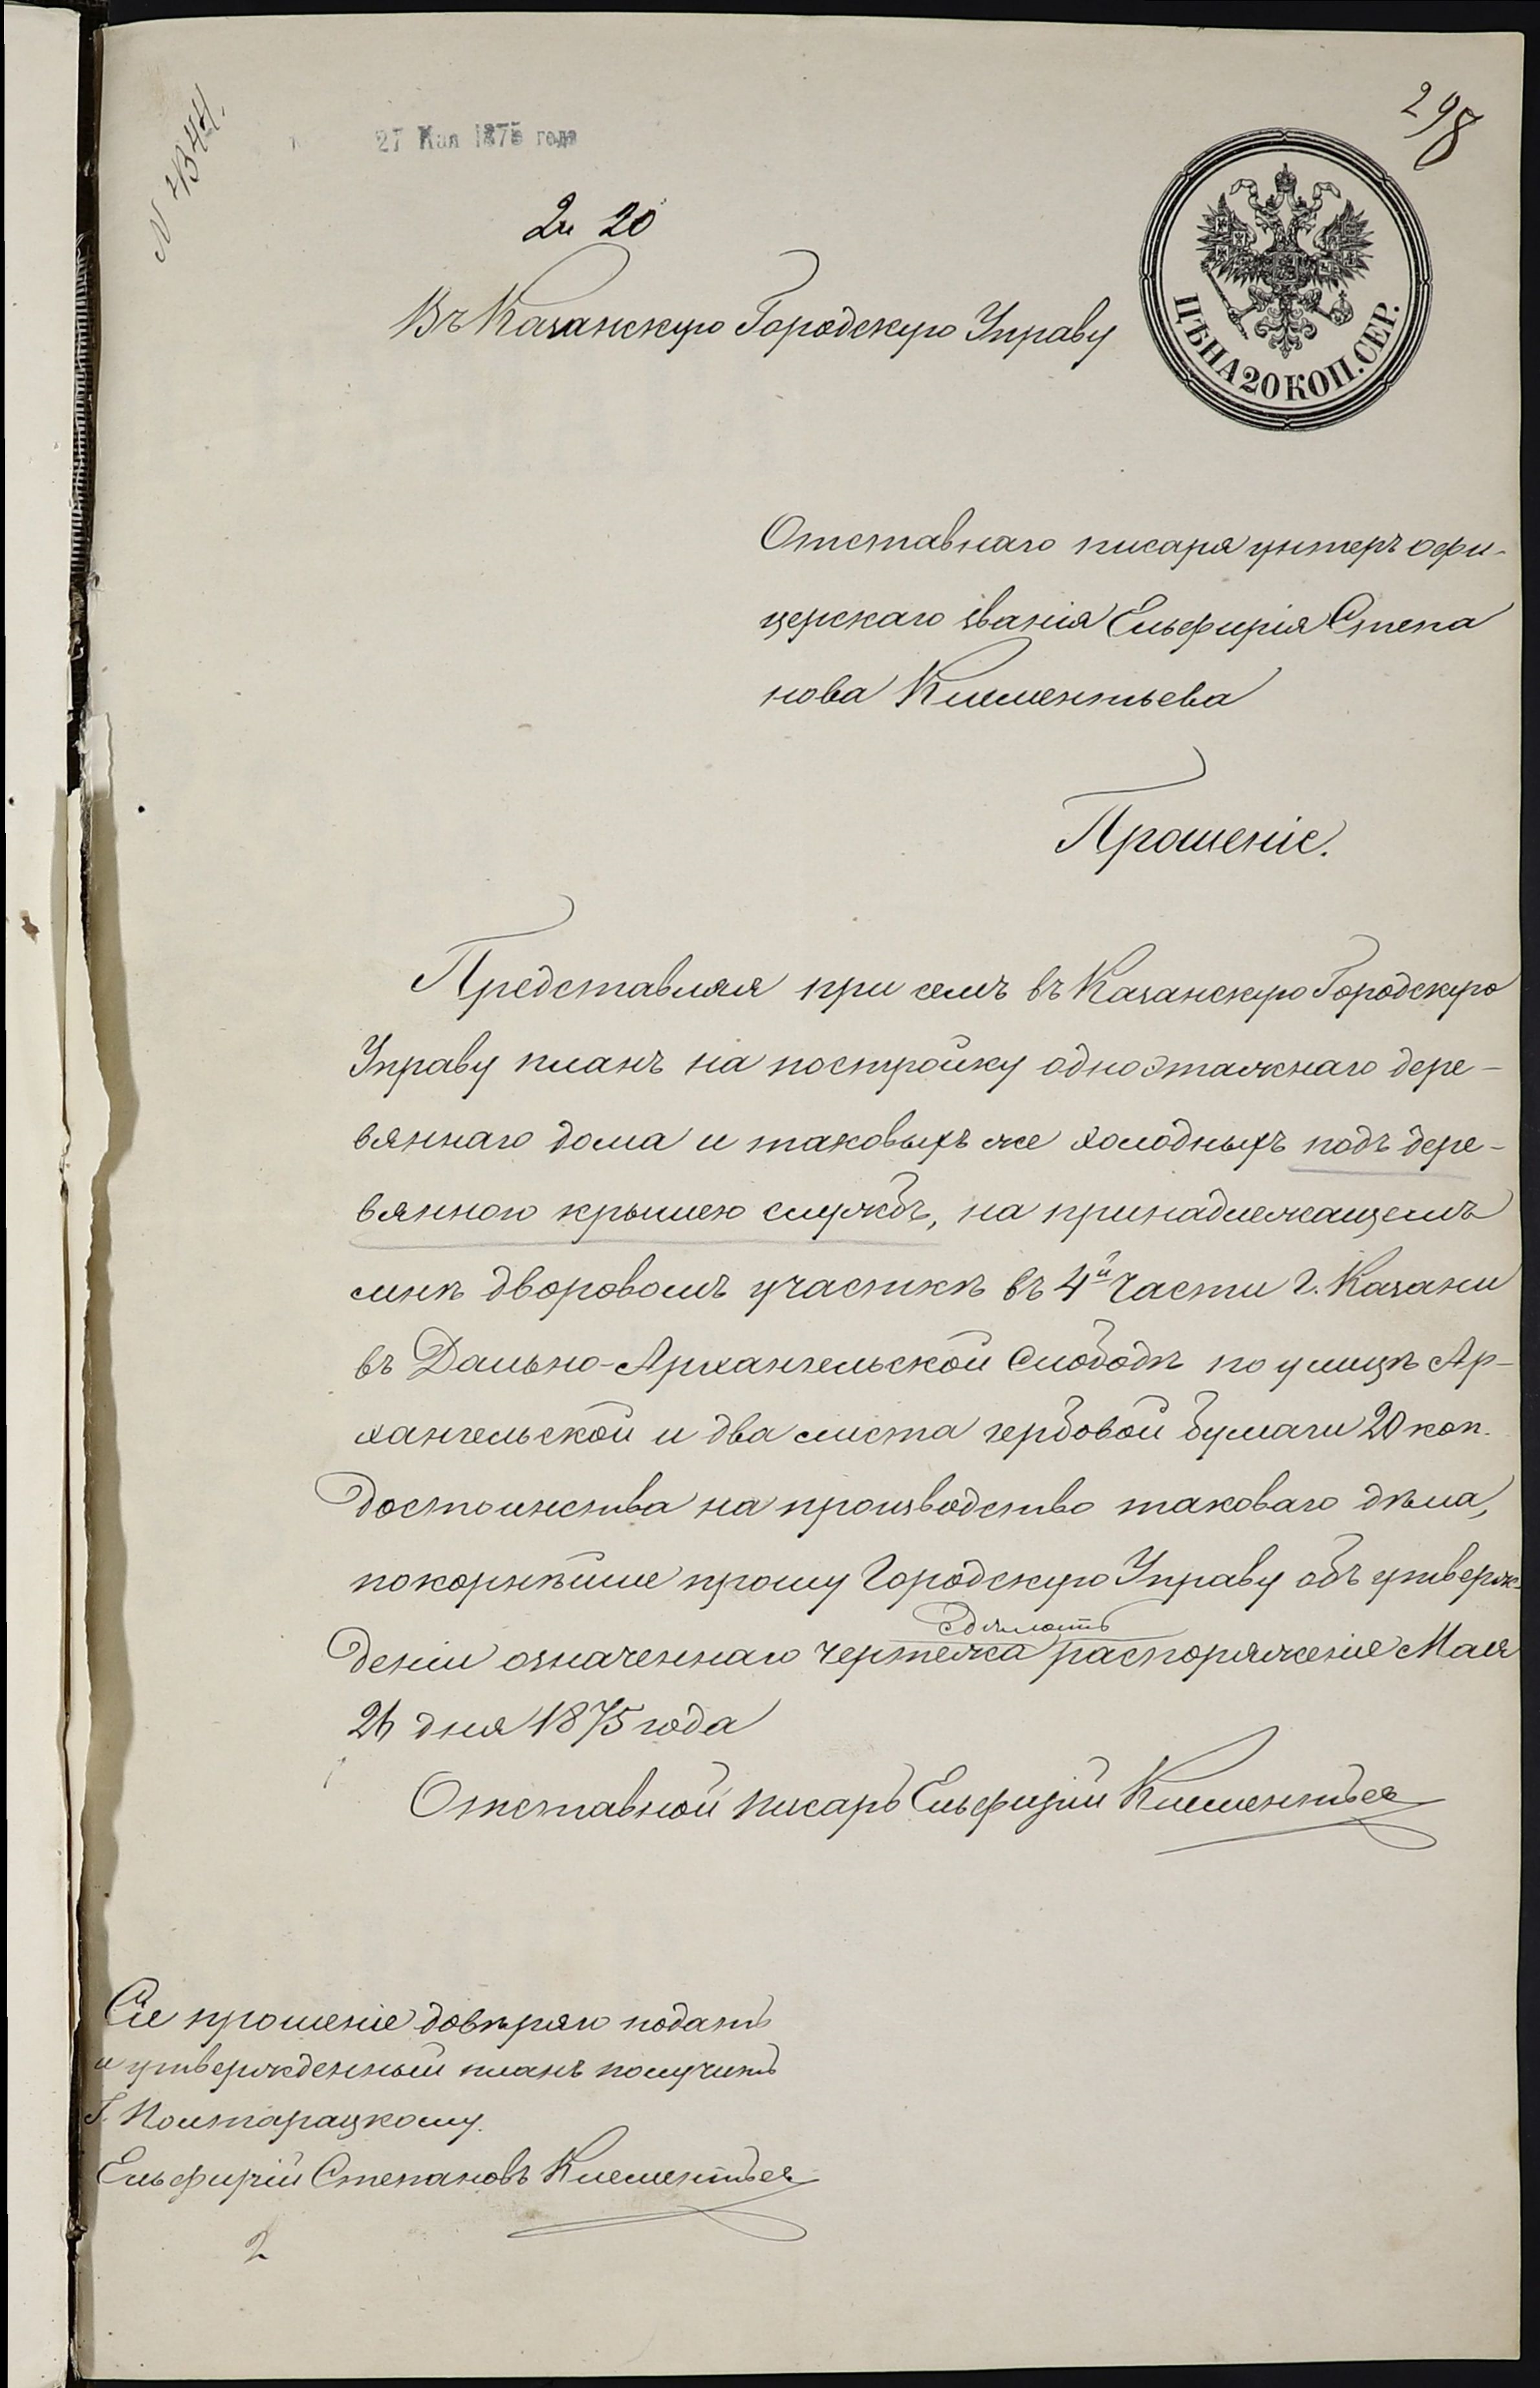 298
N 4344.
27 Мая 1875 года
2 и 20
Въ Казанскую Городскую Управу
ЦѢНА 20 КОП. СЕР.
Отставнаго писаря унтеръ офи-
церскаго званія Ельфирія Степа
нова Климентьева
Прошеніе.
Представляя при семъ въ Казанскую Городскую
Управу планъ на постройку одноэтажнаго дере-
вяннаго дома и таковыхъ же холодныхъ подъ дере-
вянною крышею службъ, на принадлежащемъ
мнѣ дворовомъ участкѣ въ 4й части г. Казани
въ Дально-Архангельской Слободѣ по улицѣ Ар-
хангельской и два листа гербовой бумаги 20 коп.
достоинства на производство таковаго дѣла,
покорнѣйше прошу Городскую Управу объ утверж-
сдѣлать
деніи означеннаго чертежа распоряженіе Мая
26 дня 1875 года
Отставной писарь Ельфирій Климентьев
Сіе прошеніе довѣряю подать
и утвержденный планъ получить
Г. Полторацкому.
Ельфирій Степановъ Климентьев
2